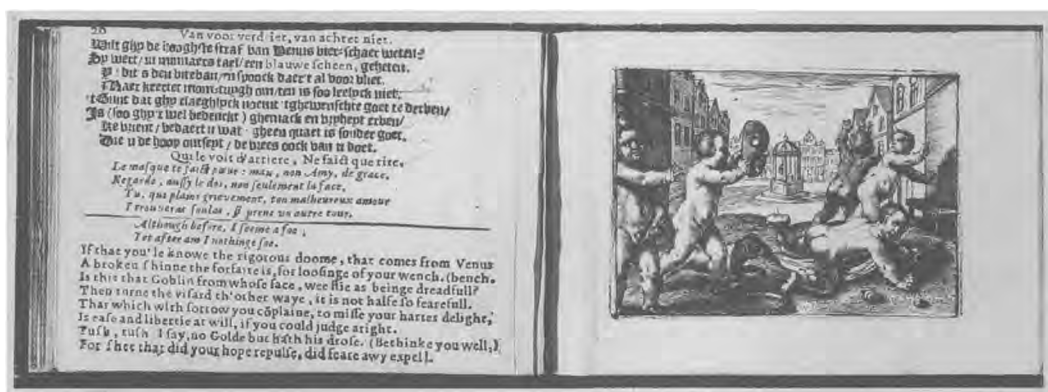 20 Van voor verdriet, van achter niet.
Wilt ghy de hooghste straf van Venus vier-schaer weten?
Sy wert, in monnaers tael, een blauwe scheen, geheten.
dit
niet.
't Gunt dat ghy claeghlyck noemt 'tghewenschte goet te derven,
Is (soo ghy't wel bedenckt) ghemack en vryheyt erven,
vrient, bedaert u wat. gheen quaet is sonder goet.
Die u de hoop ontseyt, de vrees oock van u doet.
Qui le voit d'arriere, Ne faict que rire.
Le masque te faict peur: mau, non Amy, de grace,
Regarde, aussy le dos, non seulement la face,
Tu, qui plains grievement, ton malheureux amour
Trouveras soulas, si prens un autre tour.
Although before, I seeme a foe,
Yet after am I nothinge soe.
If that you'le knowe the rigorous doome, that comes from Venus
A broken shinne the forfaite is, for loosinge of your wench. (bench.
Is this that Goblin from whose face, wee flie as beinge dreadfull?
Then turne the visard th'other waye, it is not halfe so fearefull.
That which with sorrow you cõplaine, to misse your hartes delight,
Is ease and libertie at will, if you could judge aright.
Tush, tush I say, no Golde but hath his drose. (Bethinke you well,)
For shee that did your hope repulse, did feare awy expell.